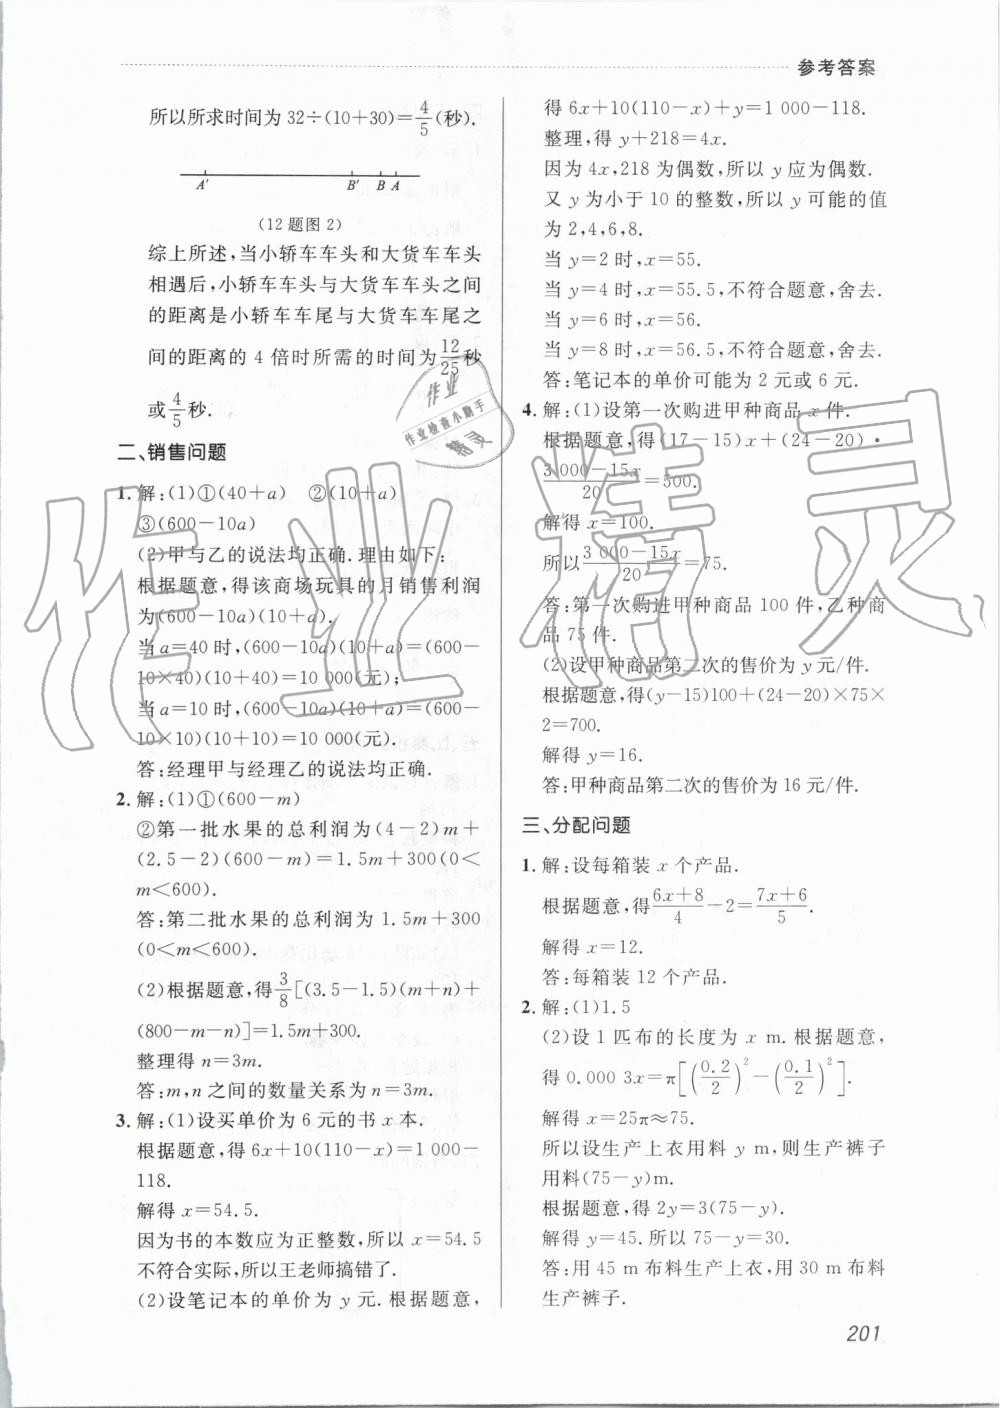 参考答案
所以所求时间为 32÷(10+30)=4/5(秒).
A′ B′ B A
(12题图2)
综上所述,当小轿车车头和大货车车头
相遇后,小轿车车头与大货车车头之间
的距离是小轿车车尾与大货车车尾之
间的距离的 4 倍时所需的时间为12/25秒
或4/5秒.
二、销售问题
1. 解:(1)①(40+a) ②(10+a)
③(600-10a)
(2)甲与乙的说法均正确.理由如下:
根据题意,得该商场玩具的月销售利润
为(600-10a)(10+a).
当a=40时,(600-10a)(10+a)=(600-
10×40)(10+40)=10 000(元);
当a=10时,(600-10a)(10+a)=(600-
10×10)(10+10)=10 000(元).
答:经理甲与经理乙的说法均正确.
2. 解:(1)①(600-m)
②第一批水果的总利润为(4-2)m+
(2.5-2)(600-m)=1.5m+300(0<
m<600).
答:第二批水果的总利润为 1.5m+300
(0<m<600).
(2)根据题意,得3/8[(3.5-1.5)(m+n)+
(800-m-n)]=1.5m+300.
整理得 n=3m.
答:m,n之间的数量关系为n=3m.
3. 解:(1)设买单价为 6 元的书 x 本.
根据题意,得 6x+10(110-x)=1 000-
118.
解得 x=54.5.
因为书的本数应为正整数,所以 x=54.5
不符合实际,所以王老师搞错了.
(2)设笔记本的单价为 y 元.根据题意,
得 6x+10(110-x)+y=1 000-118.
整理,得 y+218=4x.
因为 4x,218 为偶数,所以 y 应为偶数.
又 y 为小于 10 的整数,所以 y 可能的值
为 2,4,6,8.
当 y=2 时,x=55.
当 y=4 时,x=55.5,不符合题意,舍去.
当 y=6 时,x=56.
当 y=8 时,x=56.5,不符合题意,舍去.
答:笔记本的单价可能为 2 元或 6 元.
4. 解:(1)设第一次购进甲种商品 x 件.
根据题意,得(17-15)x+(24-20)·
(3 000-15x)/20=500.
解得 x=100.
所以(3 000-15x)/20=75.
答:第一次购进甲种商品 100 件,乙种商
品 75 件.
(2)设甲种商品第二次的售价为 y 元/件.
根据题意,得(y-15)100+(24-20)×75×
2=700.
解得 y=16.
答:甲种商品第二次的售价为 16 元/件.
三、分配问题
1. 解:设每箱装 x 个产品.
根据题意,得(6x+8)/4-2=(7x+6)/5.
解得 x=12.
答:每箱装 12 个产品.
2. 解:(1)1.5
(2)设 1 匹布的长度为 x m.根据题意,
得 0.000 3x=π[(0.2/2)²-(0.1/2)²].
解得 x=25π≈75.
所以设生产上衣用料 y m,则生产裤子
用料(75-y)m.
根据题意,得 2y=3(75-y).
解得 y=45.所以 75-y=30.
答:用 45 m 布料生产上衣,用 30 m 布料
生产裤子.
201
作业
作业检查小助手
精灵
作业精灵